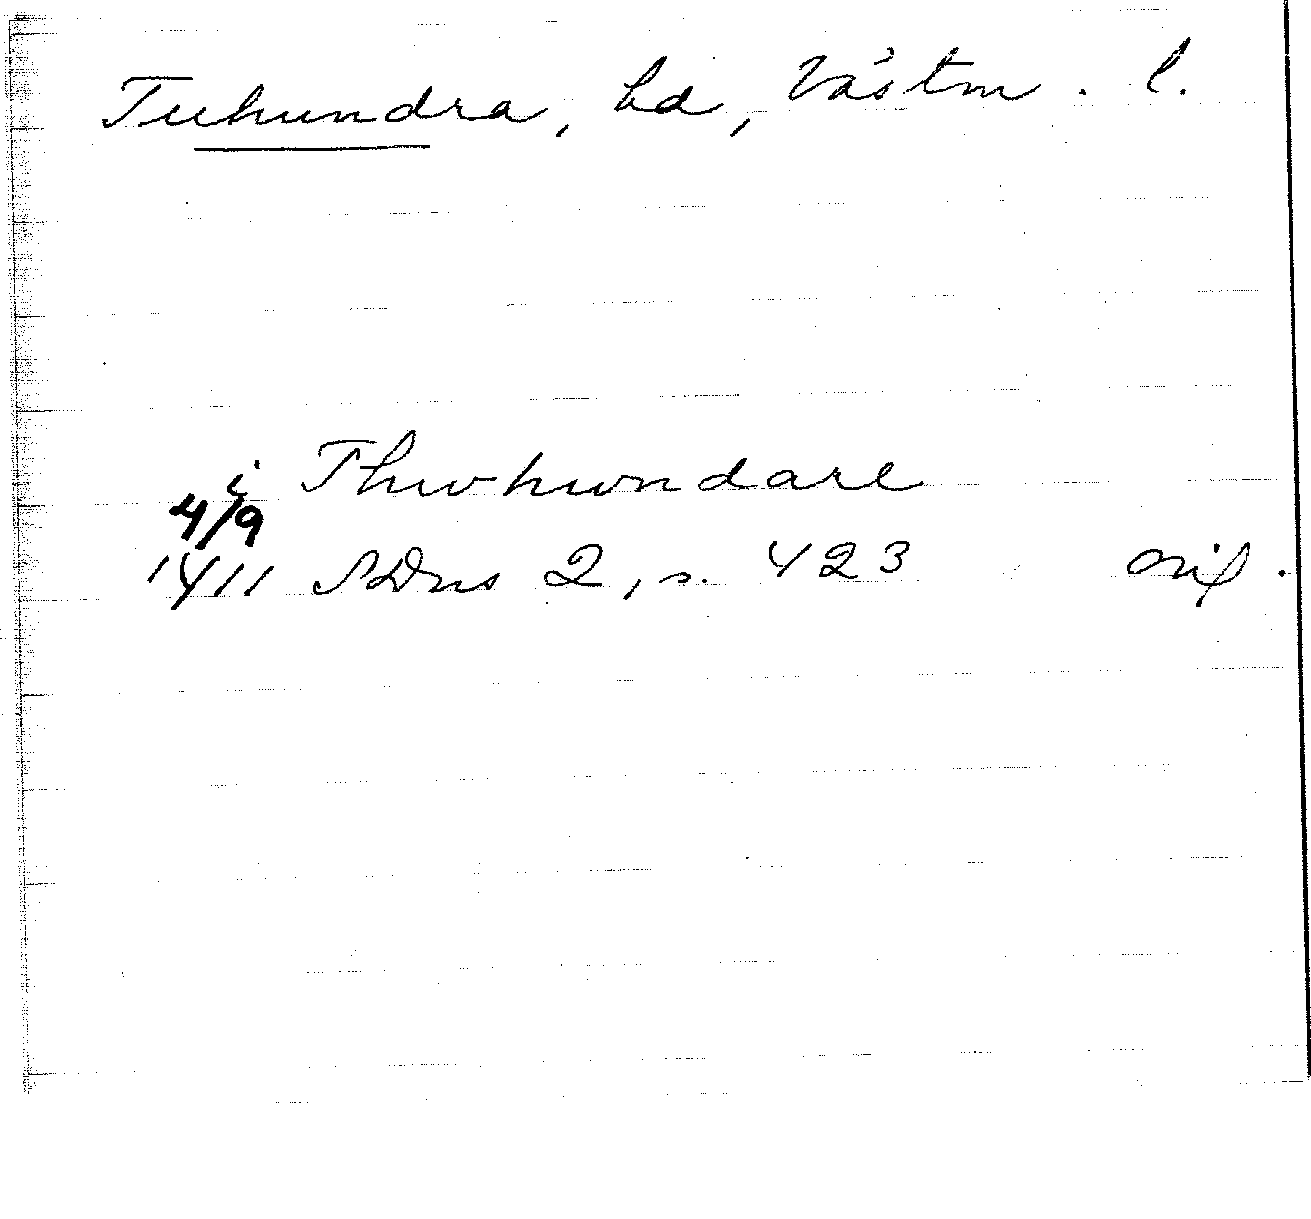 Tuhundra, hd, Västm. l.
i Thwhwndare
4/9
1411 SDns 2, s. 423 orig.